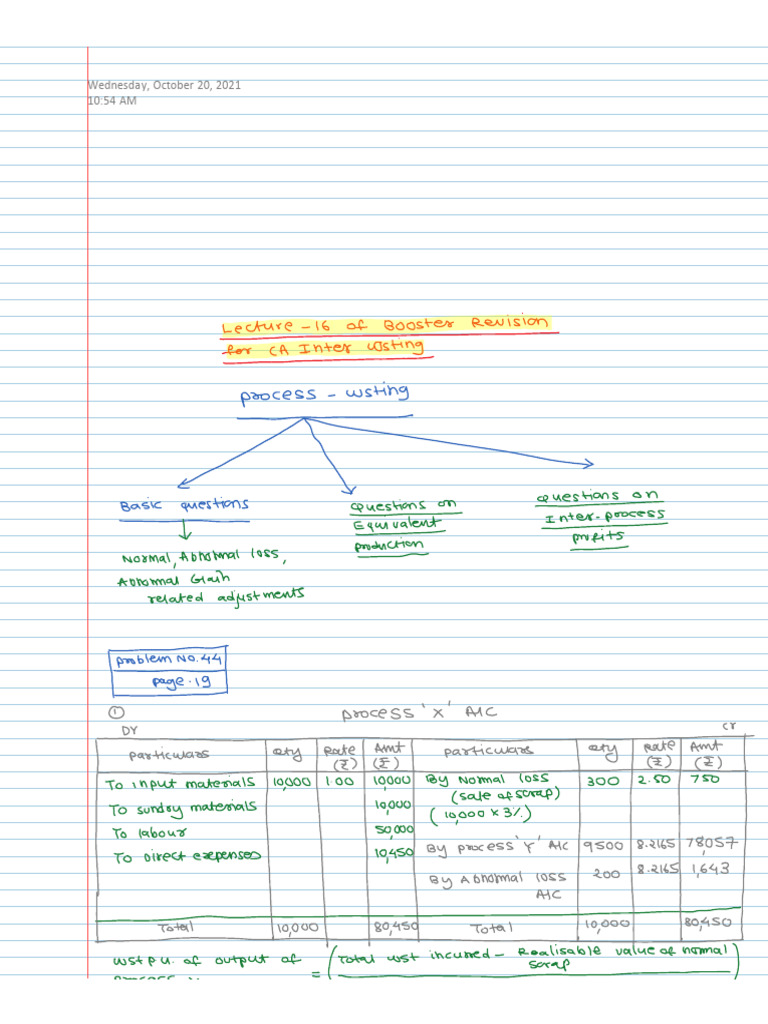 Wednesday, October 20, 2021
10:54 AM
Lecture -16 of Booster Revision
for CA Inter Costing
Process - Costing
Basic questions
Questions on
Equivalent
production
Questions on
Inter-process
profits
Normal, Abnormal loss,
Abnormal Gain
related adjustments
Problem No.44
page.19
① Process 'X' A/C
Dr Cr
Particulars Qty Rate (₹) Amt (₹) Particulars Qty Rate (₹) Amt (₹)
To input materials 10,000 1.00 10,000 By Normal loss 300 2.50 750
(sale of scrap)
To sundry materials 10,000 (10,000 x 3%)
To labour 50,000
To Direct expenses 10,450 By process 'Y' A/C 9500 8.2165 78,057
By Abnormal loss 200 8.2165 1,643
A/C
Total 10,000 80,450 Total 10,000 80,450
Cost p.u. of output of = (Total cost incurred - Realisable value of normal
scrap)